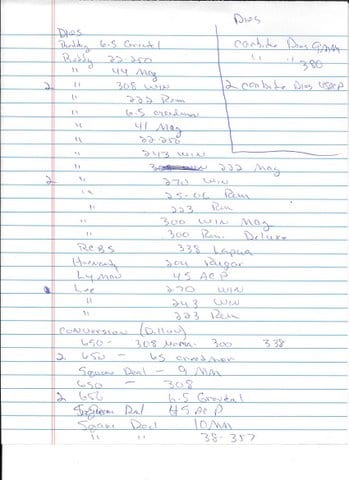 Dies
Redding 6.5 Grendel
Redding 22-250
" 44 Mag
2 " 308 WIN
" 222 Rem
" 6.5 creedmor
" 41 Mag
" 22-250
" 243 WIN
" 222 Mag
2 " 270 WIN
" 25-06 Rem
" 223 Rem
" 300 WIN Mag
" 300 Rem. Deluxe
RCBS 338 Lapua
Hornady 204 Ruger
Lyman 45 ACP
Lee 270 WIN
" 243 WIN
" 223 Rem
CONVERSION (Dillon)
650 - 308 Norma 300 338
2 650 - 65 creedmor
Square Deal - 9 MM
650 - 308
2 650 6.5 Grendel
Square Deal 45 ACP
Square Deal 10MM
" " 38-357
Dies
carbide Dies 9MM
" " 380
2 carbide Dies 45ACP